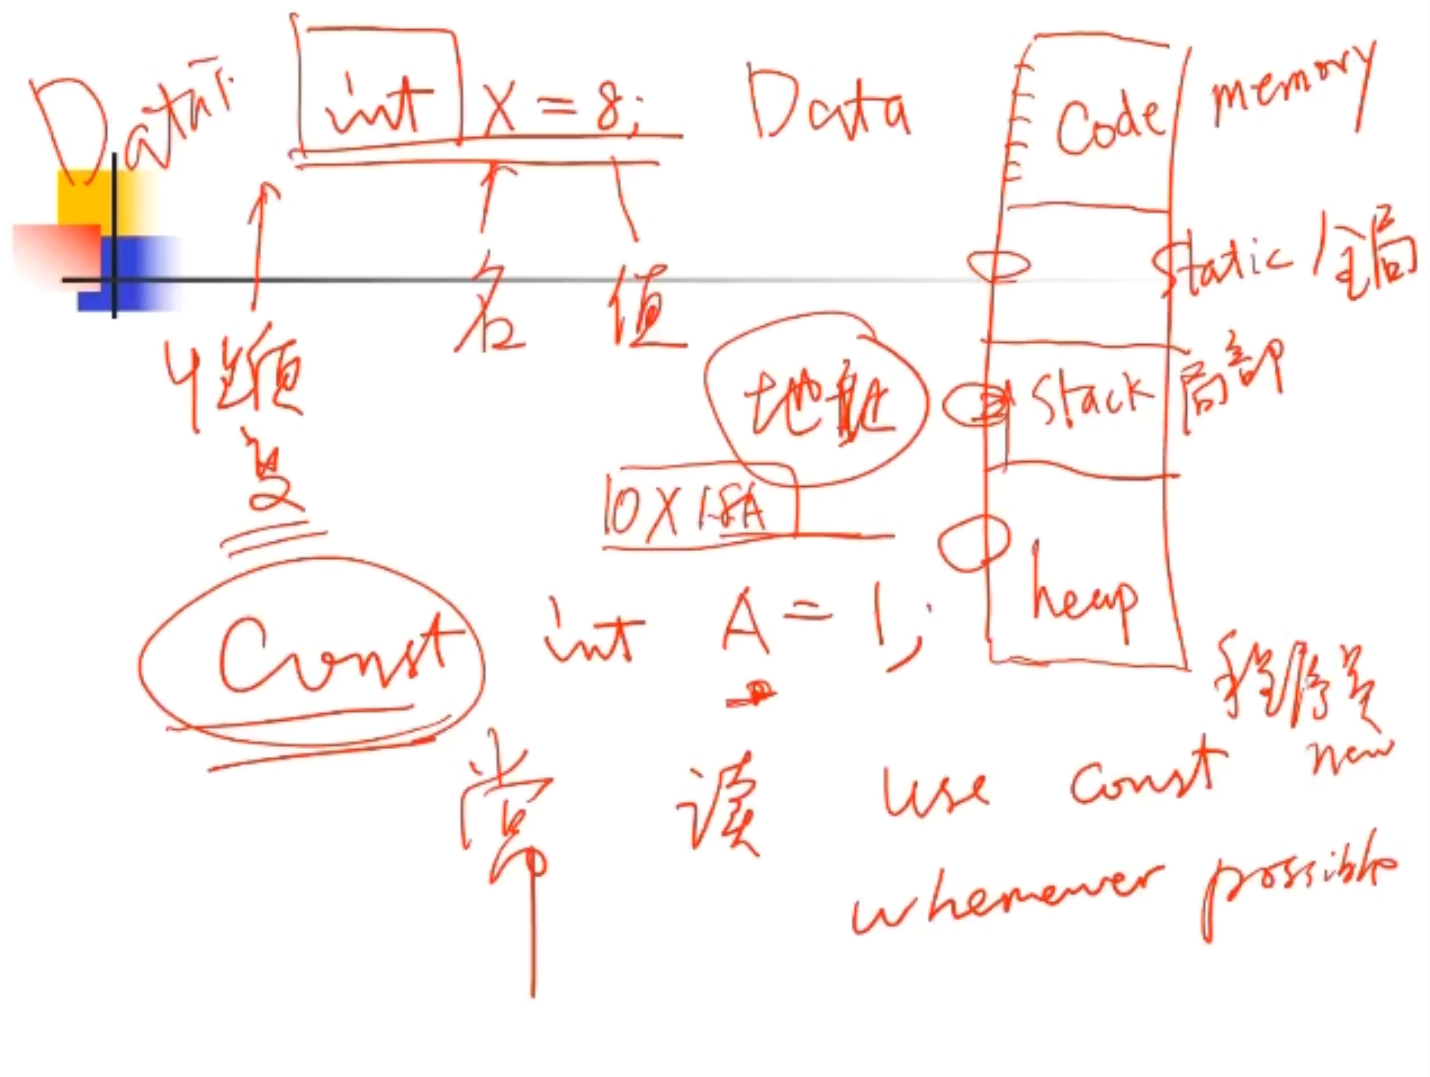 Data int x = 8; Data
名 值
Code memory
static / 全局
stack 局部
地址
heap
const int A = 1;
程序员
new
常 读 use const
whenever possible